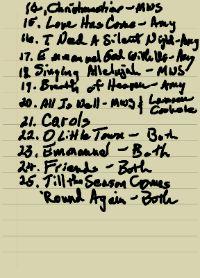 14. Christmastime - MWS
15. Love Has Come - Amy
16. I Need A Silent Night - Amy
17. Emmanuel God With Us - Amy
18. Singing Alleluja - MWS
19. Breath of Heaven - Amy
20. All Is Well - MWS &
21. Carols
22. O Little Town - Both
23. Emmanuel - Both
24. Friends - Both
25. Till the Season Comes
'Round Again - Both